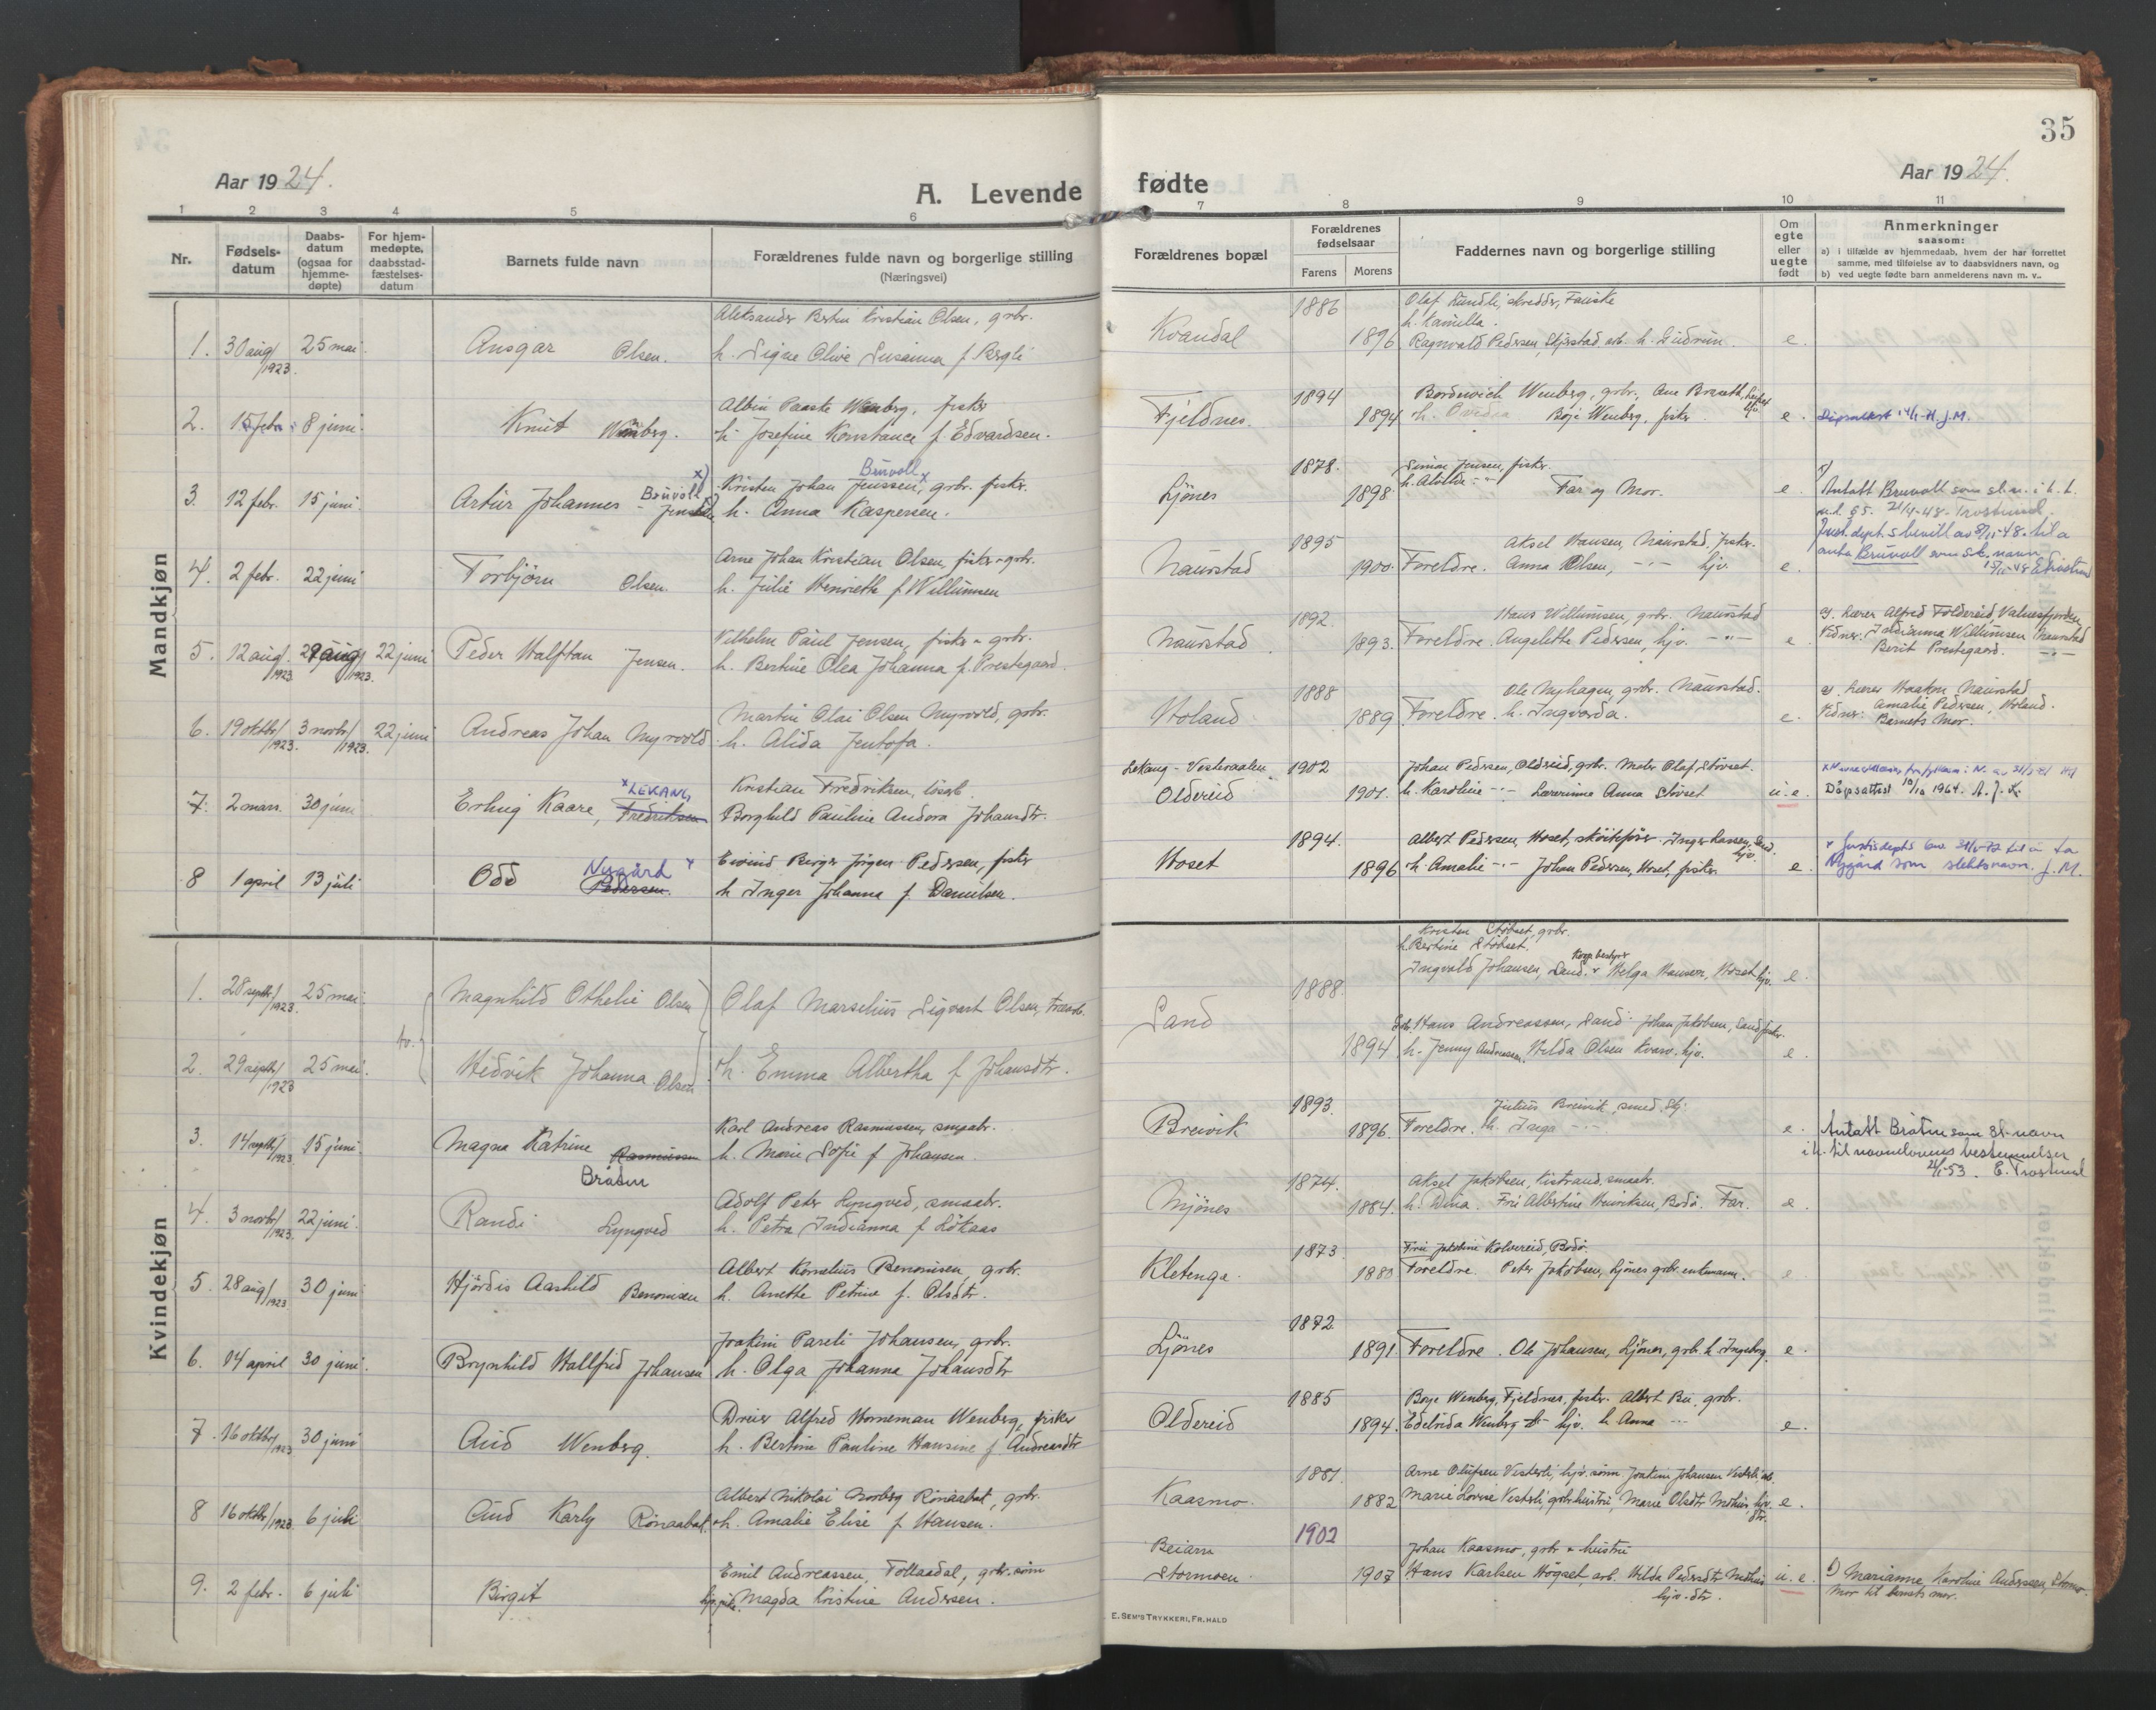 35
Aar 1924.
A. Levende
fødte
Aar 1924.
1 2 3 4 5 6 7 8 9 10 11
Nr.
Fødsels-
datum
Daabs-
datum
(ogsaa for
hjemme-
døpte)
For hjem-
medøpte,
daabsstad-
fæstelses-
datum
Barnets fulde navn
Forældrenes fulde navn og borgerlige stilling
(Næringsvei)
Forældrenes bopæl
Forældrenes
fødselsaar
Farens Morens
Faddernes navn og borgerlige stilling
Om
egte
eller
uegte
født
Anmerkninger
saasom:
a) i tilfælde av hjemmedaab, hvem der har forrettet
samme, med tilføielse av to daabsvidners navn, og
b) ved uegte fødte barn anmelderens navn m. v..
Mandkjøn
1. 30 aug/1923. 25 mai. Ansgar Olsen.
Aleksander Bertin Kristian Olsen, grbr.
h. Signe Olive Susanna f. Bergli
Kvandal 1886 1896
Olaf Rundli, skredder, Fauske
h. Kamilla.
Ragnvald Pedersen, Stjerstad arb. h. Gudrun. e.
2. 15 febr. 8 juni. Knut Wenberg.
Albin Paaske Wenberg, fisker
h. Josefine Konstance f. Edvardsen.
Fjeldnes. 1894 1894
Wenberg, grbr.,
h. Ovedia Boje Wenberg, fisker. e.
J.M.
3 12 febr. 15 juni. Artur Johannes Bruvoll x) Jenssen
Bruvoll x
Kristen Johan Jenssen, grbr. fisker.
h. Anna Kaspersen.
Ljönes 1878. 1898
Simon Jensen, fisker.
h. Alvilde -"- Far og Mor. e.
Antatt Bruvoll som sl.n. i h. t.
21/4-48. Trostrund.
Just.dept.s bevill av 8/11-48 til å
anta Bruvoll som sl. navn
4. 2 febr. 22 juni Torbjörn Olsen.
Arne Johan Kristian Olsen, fisker-grbr.
h. Julie Henriette f. Willumsen
Naurstad 1895 1900.
Aksel Hansen, Naurstad, fisker.
Foreldre. Anna Olsen, -"- hjv. e.
5. 12 aug. 1923 29 aug/1923. 22 juni Peder Halftan Jensen.
Vilhelm Paul Jensen, fisker - grbr.
h. Bertine Olea Johanna f. Prestegaard.
Naurstad. 1892. 1893.
Hans Willumsen, grbr. Naurstad
Foreldre. Angelethe Pedersen, hjv. -"- e
a). Lærer Alfred Foldereid Valnesfjorden
Vidner: Indianna Willumsen Naurstad
Berit Prestegaard. -"-
6. 19 oktbr/1923. 3 novbr/1923. 22 juni Andreas Johan Myrvold
Martin Olai Olsen Myrvold, grbr.
h. Alida Jentofa.
Höland. 1888 1889
Ole Nyhagen, grbr. Naurstad.
Foreldre. h. Ingvarda. e.
a). Lærer Haakon Naurstad
Vidner: Amalie Pedersen, Höland.
Barnets Mor.
7. 2 mars. 30 juni Erling Kaare, x LEKANG Fredriksen
Kristian Fredriksen, lösarb.
Borghild Pauline Andora Johansdtr.
Lekang - Vesteraalen
Oldereid 1902 1901.
Johan Pedersen, Oldereid, grbr. Maler Olaf Stövset.
h. Karoline -"- Lærerinne Anna Stövset u.e.
Dåpsattest 10/10 1964.
8 1 april 13 juli Odd Nygård x Pedersen.
Eivind Birger Jörgen Pedersen, fisker
h Inger Johanna f. Danielsen.
Hoset 1894. 1896
Albert Pedersen, Hoset, Inger Hansen, Sand. hjv.
h. Amalie -"- Johan Pedersen, Hoset, fisker. e.
x Justisdepts til å ta
Nygård som slektsnavn. J.M.
Kvindekjøn
1. 28 septbr/1923. 25 mai. Magnhild Othelie Olsen
Olaf Marselius Sigvart Olsen,
tv.
2. 29 septbr/1923 25 mai. Hedvik Johanna Olsen
h. Emma Albertha f. Johansdtr.
Sand 1888. 1894
Kristen Stövset, grbr.
h. Bertine Stövset.
Ingvald Johansen, Sand. Helga Hansen, Hoset, hjv. e.
Hans Andreassen, Sand. Johan Jakobsen, Sand fisker.
h. Jenny Andreassen. Hilda Olsen Kvarv. hjv. e.
3. 14 septbr/1923 15 juni. Magna Katrine Rasmussen
Bråten
Karl Andreas Rasmussen, smaabr.
h. Marie Sofie f. Johansen.
Breivik 1893. 1896.
Julius Breivik, smed.
Foreldre. h. Inga -"- e.
Antatt Bråten som sl. navn
i h. til navnelovens bestemmelser
21/1-53. E. Trostrund
4. 3 novbr/1923. 22 juni. Randi Lyngved
Adolf Peter Lyngved, smaabr.
h. Petra Indianna f. Lökaas
Mjönes 1874. 1884.
Aksel Jakobsen, Listrand, smaabr.
h. Dina. Fru Albertine Henriksen, Bodö. Far. e.
5. 28 aug/1923 30 juni Hjördis Aashild Benonisen
Albert Kornelius Benonisen, grbr.
h. Anethe Petrine f. Olsdtr.
Kletenga. 1873. 1880
Fru Jakobine Kolvereid, Bodö.
Foreldre. Peter Jakobsen, Ljönes grbr. enkemann. e.
6. 14 april 30 juni. Brynhild Hallfrid Johansen
Joakim Pareli Johansen, grbr.
h. Olga Johanna Johansdtr
Ljönes 1872. 1891
Foreldre. Ole Johansen, Ljönes, grbr. h. Ingeborg. e.
7. 16 oktbr/1923 30 juni Aud Wenberg.
Dreier Alfred Horneman Wenberg, fisker
h. Bertine Pauline Hansine f. Andreasdtr
Oldereid 1885 1894.
Boye Wenberg, Fjeldnes, fisker. Albert Bu, grbr.
Edelvida Wenberg hjv. h. Anna -"- e.
8 16 oktbr/1923. 6 juli Aud Karly Rönaabat.
Albert Nikolai Norberg Rönaabat, grbr.
h. Amalie Elise f. Hansen.
Kaasmo. 1881. 1882
Arne Olufsen Vesterli, hjv. sönn Joakim Johansen
Marie Lovise Vesterli, grbr.hustru, Marie Olsdtr. Mothus, hjv. dtr. e.
9. 2 febr. 6 juli Birgit
Emil Andreassen, Tollaadal, grbr.sönn
Magda Kristine Andersen.
Beiarn
Stormoen. 1902 1907
Johan Kaasmo, grbr. & hustru
Hans Karlsen Högset, arb. Hilda Pedersdtr. Mothus u.e.
hjv. dtr.
1) Marianne Karoline Anderssen,
mor til barnets mor.
E. SEM'S TRYKKERI, FR.HALD